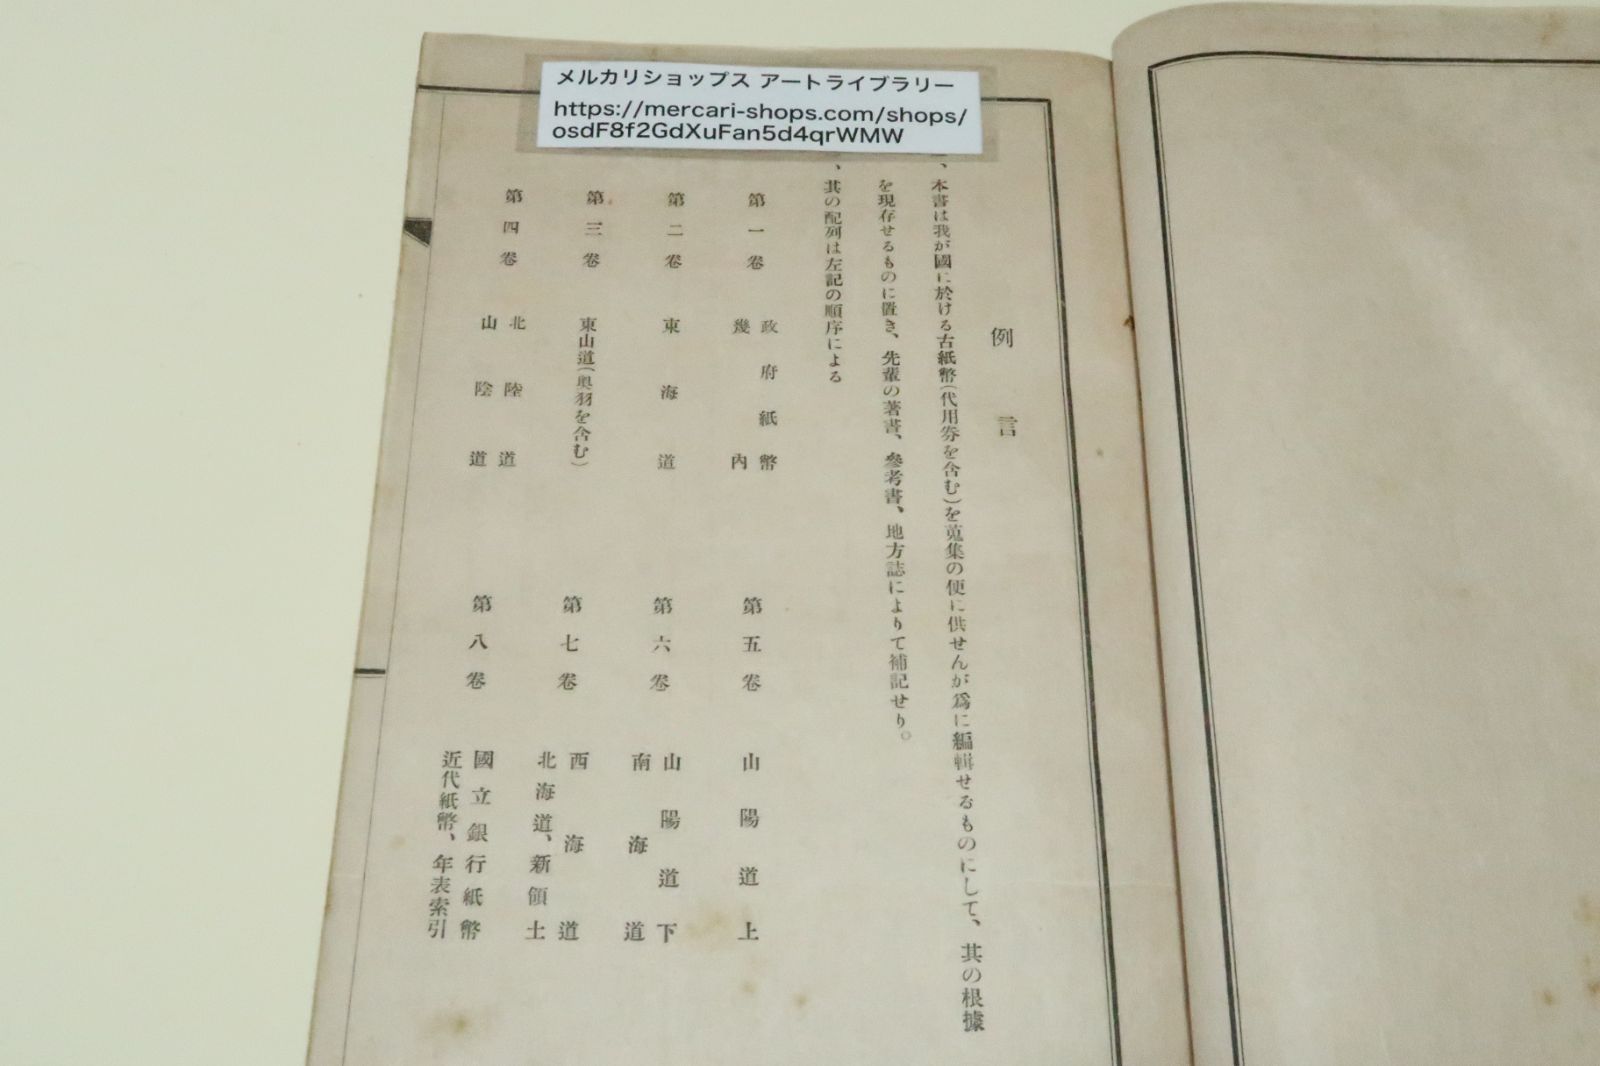 メルカリショップス アートライブラリー
https://mercari-shops.com/shops/
osdF8f2GdXuFan5d4qrWMW
例言
、本書は我が國に於ける古紙幣(代用券を含む)を蒐集の便に供せんが爲に編輯せるものにして、其の根據
を現存せるものに置き、先輩の著書、參考書、地方誌によりて補記せり。
、其の配列は左記の順序による
第一卷 政府紙幣
幾内
第二卷 東海道
第三卷 東山道(奥羽を含む)
第四卷 北陸道
山陰道
第五卷 山陽道上
第六卷 山陽道下
南海道
第七卷 西海道
北海道、新領土
第八卷 國立銀行紙幣
近代紙幣、年表索引